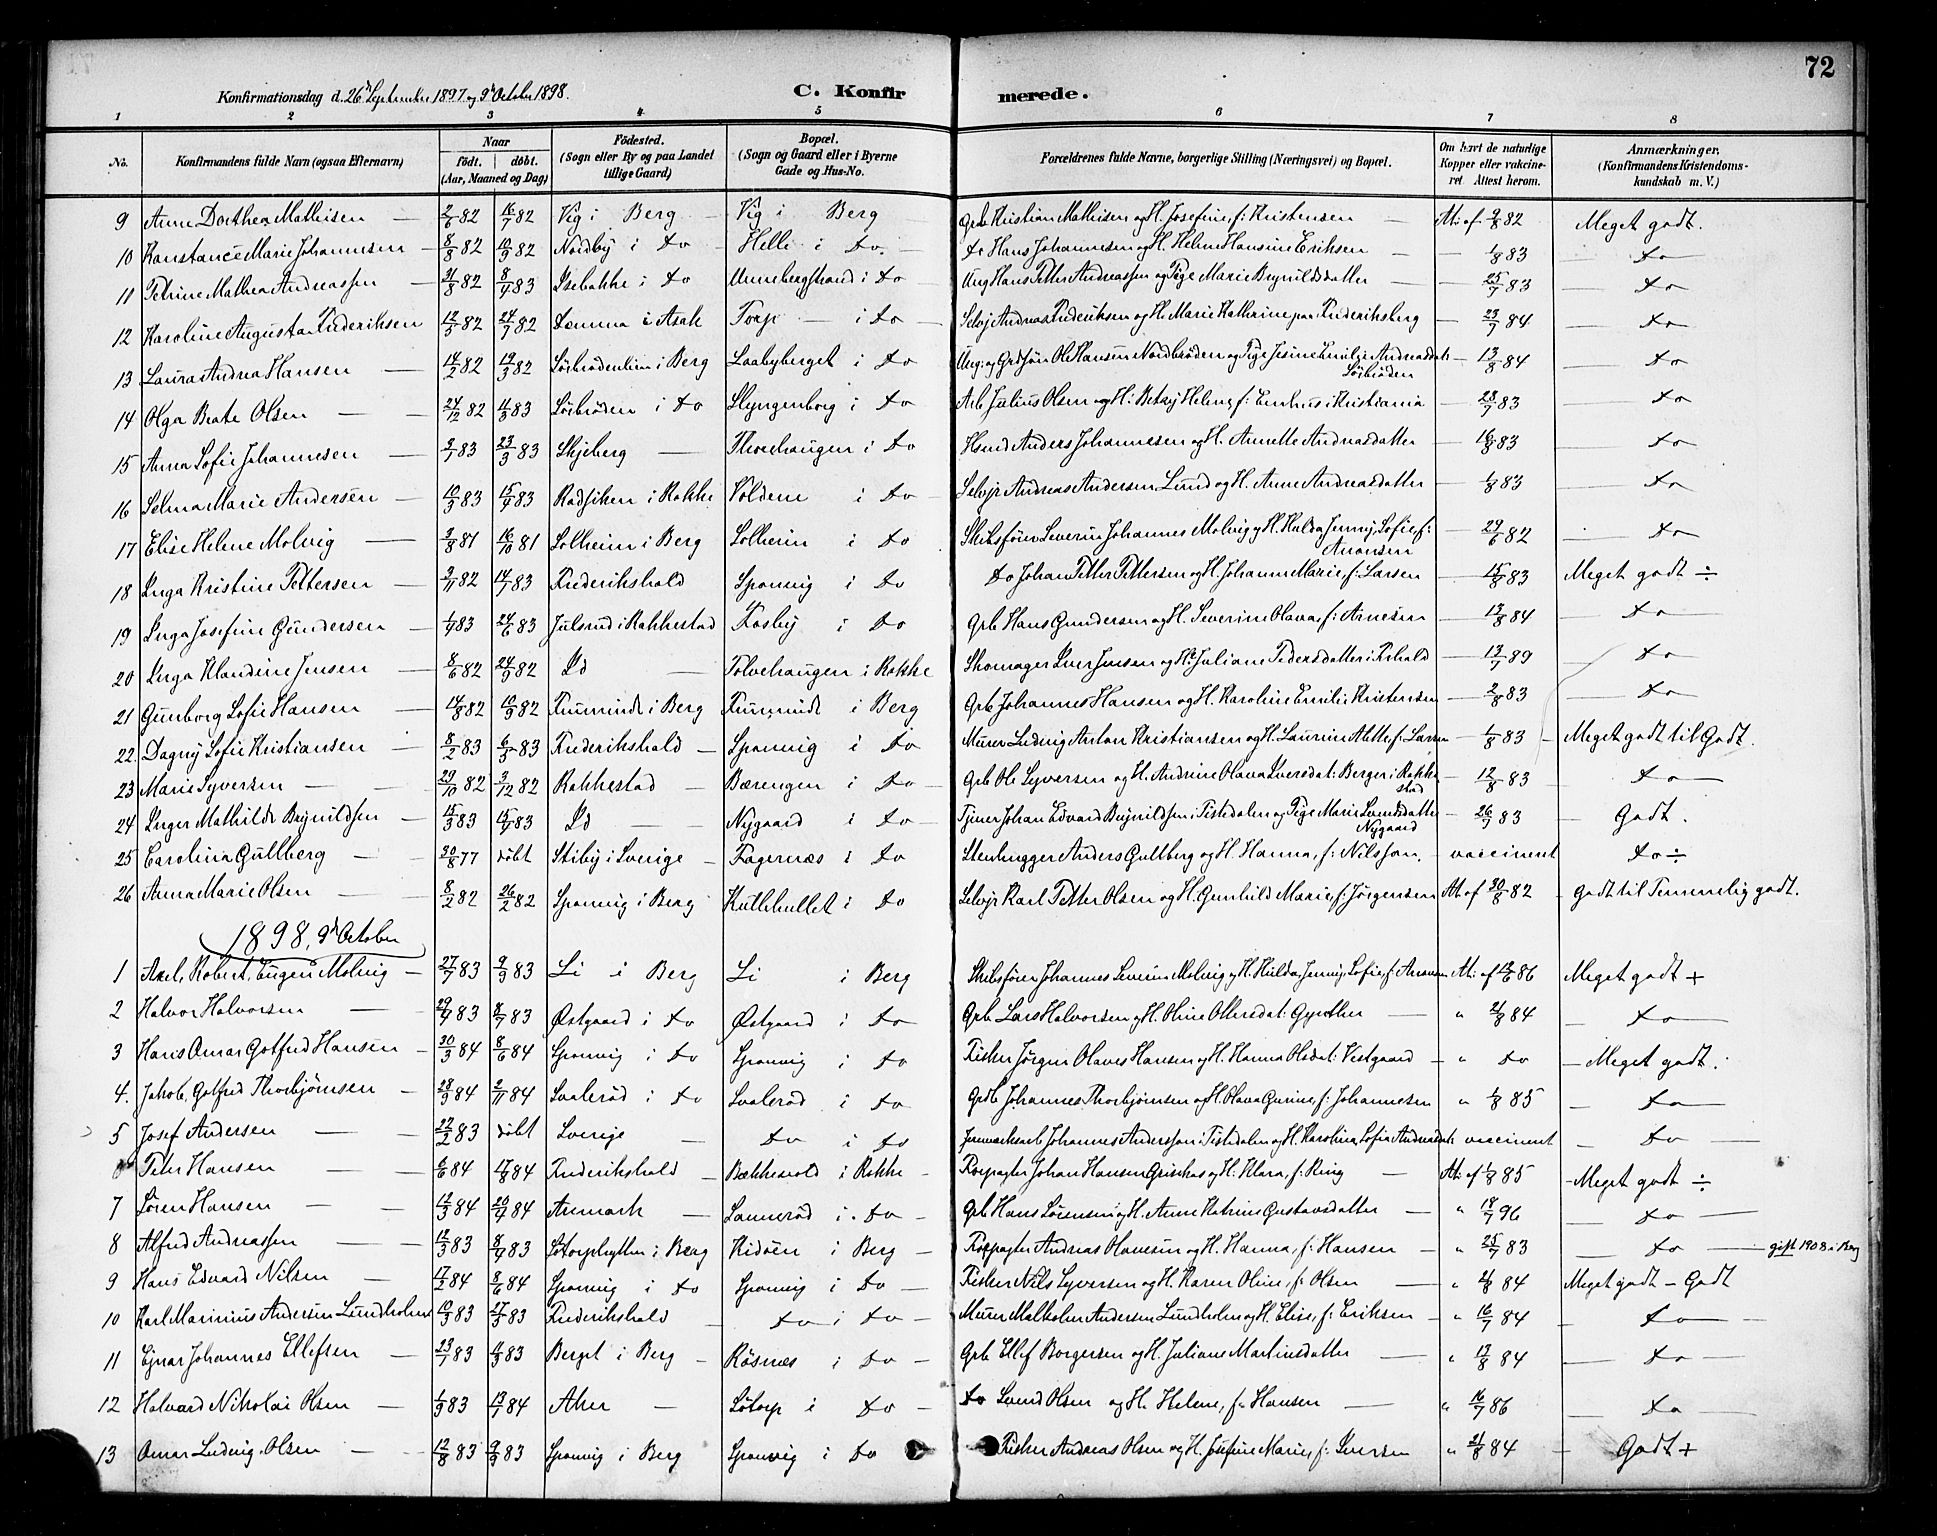 72
Konfirmationsdag d. 26d September 1897 og 9d October 1898.
C. Konfirmerede.
1 2 3 4 5 6 7 8
No. Konfirmandens fulde Navn (ogsaa Efternavn) Naar födt. döbt. (Aar, Maaned og Dag) Födested. (Sogn eller By og paa Landet tillige Gaard) Bopæl. (Sogn og Gaard eller i Byerne Gade og Hus-No. Forældrenes fulde Navne, borgerlige Stilling (Næringsvei) og Bopæl. Om havt de naturlige Kopper eller vakcineret. Attest herom. Anmærkninger. (Konfirmandens Kristendomskundskab m. V.)
9 Anne Dorthea Mathisen — 2/6 82 16/7 82 Vig i Berg Vig i Berg Grb Kristian Mathisen og H. Josefine, f: Kristensen — At: af 9/8 82 Meget godt.
10 Konstance Marie Johannesen — 8/8 82 10/9 82 Nordby i do Helle i do. do Hans Johannesen og H. Helene Hansine Eriksen — 1/8 83 do
11 Petrine Mathea Andreassen — 21/8 82 8/7 83 Isebakke i do Unnebergstrand i do Ung Hans Petter Andreassen og Pige Marie Brynildsdatter — 25/7 83 do
12 Karoline Augusta Frederiksen 12/3 82 24/7 82 Lemma i Asak Torp i do Selvj Andreas Frederiksen og H. Marie Kathrine paa Frederiksberg — 23/7 84 do
13 Laura Andrea Hansen — 14/2 82 19/3 82 i Berg Laabyberget i do Ung. og Grdsøn Ole Hansen Nordbröden og Pige Jesine Emilie Andreasdatr Sörbröden — 13/8 84 do
14 Olga Beate Olsen — 24/12 82 11/3 83 Sörbröden i do Slyngenborg i do Arb Julius Olsen og H. Betsy Helene, f: i Kristiania — 28/7 83 do
15 Anna Sofie Johannesen — 2/1 83 23/3 83 Skjeberg — i do Anders Johannesen og H. Annette Andreasdatter — 16/8 83 do
16 Selma Marie Andersen — 10/3 83 15/4 83 Rodsiken i Rokke Voldene i do Selvjr Andreas Andersen Lund og H. Anne Andreasdatter — 1/8 83 do
17 Elise Helene Molvig — 3/8 81 16/10 81 Solheim i Berg Solheim i do Skibsfører Severin Johannes Molvig og H. Hulda Jenny Sofie, f: Aronsen — 29/6 82 do
18 Inga Kristine Pettersen — 3/11 82 14/1 83 Frederikshald Sponvig i do do Johan Petter Pettersen og H. Johanne Marie, f: Larsen — 15/8 83 Meget godt ÷
19 Inga Josefine Gundersen — 1/4 83 24/6 83 Julsrud i Rakkestad Kosby i do Grb Hans Gundersen og H. Severine Olava, f: Arnesen — 13/8 84 do
20 Inga Klaudine Jensen — 8/6 82 24/9 82 Id — Tolvehaugen i Rokke Skomager Iver Jensen og H. Juliane Pedersdatter i Frhald — 13/7 89 do
21 Gunborg Sofie Hansen — 14/8 82 10/9 82 i Berg i Berg Grb Johannes Hansen og H. Karoline Emilie Kristensen — 2/8 83 do
22. Dagny Sofie Kristiansen — 8/2 83 6/5 83 Frederikshald — Sponvig i do Murer Ludvig Anton Kristiansen og H. Laurine Alette, f: Larsen — 1/8 83 — Meget godt til Godt.
23 Marie Syversen — 29/10 82 3/12 82 Rakkestad — Bærengen i do — Grb Ole Syversen og H. Andrine Olava Iversdat: Berger i Rakkestad — 12/8 83 do
24 Inger Mathilde Brynildsen — 15/3 83 15/4 83 Id — Nygaard i do Tjener Johan Edvard Brynildsen i Tistedalen og Pige Marie Nygaard — 26/7 83 — Godt.
25 Carolina Gullberg — 30/8 77 döbt Stiby i Sverige — Fagernæs i do Stenhugger Anders Gullberg og H. Hanna, f: Nilsson. — vaccineret do ÷
26 Anna Marie Olsen — 8/2 82 26/2 82 Sponvig i Berg Kullehullet i do Selvjr Karl Petter Olsen og H. Gunhild Marie, f: Jörgensen At af 30/8 82 — Godt til Temmelig godt.
1898, 9d October
1 Axel, Robert, Eugen Molvig — 27/7 83 9/9 83 Li i Berg Li i Berg Skibsfører Johannes Severin Molvig og H. Hulda, Jenny, Sofie, f: Aronsen At: af 19/6 86 Meget godt +
2 Halvor Halvorsen — 29/4 83 8/7 83 Østgaard i do Østgaard i do Grb Lars Halvorsen og H. Oline Ollersdat: — " 21/8 84 do
3 Hans Omar Gotfred Hansen — 30/3 84 8/6 84 Sponvig i do Sponvig i do Fisker Jörgen Olaves Hansen og H. Hanna Olsdat: Vestgaard — " do — Meget godt.
4. Jakob, Gotfred Thorbjörnsen — 28/9 84 2/11 84 Svaleröd i do Svaleröd i do Grdb Johannes Thorbjörnsen og H. Olava Gurine, f: Johannesen " 1/8 85 do
5 Josef Andersen — 22/2 83 döbt Sverige — do i do Johannes Andersson i Tistedalen og H. Karolina Sofia Andreasdr vaccineret do
6 Peter Hansen — 6/6 84 17/8 84 Frederikshald — Bækkevold i Rokke Johan Hansen og H. Klara, f: Ring — At: af 1/8 85 Meget godt ÷
7 Sören Hansen — 12/3 84 20/4 84 Aremark — Lanneröd i do — Grb Hans Sörensen og H. Anne Katrine Gustavsdatter — " 18/7 96 do
8 Alfred Andreassen — 12/3 83 8/4 83 Sötorphytten i Berg Kidöen i Berg — Andreas Olavesen og H. Hanna, f: Hansen — " 25/7 83 do — gift 1908 i Berg
9 Hans Edvard Nilsen — 17/2 84 8/6 84 Sponvig i do Sponvig i do — Fisker Nils Syversen og H. Karen Oline, f: Olsen — " 21/8 84 Meget godt — Godt
10 Karl Marinius Andersen Lundholm 10/3 83 27/5 83 Frederikshald — do i do — Murer Malkolm Andersen Lundholm og H. Elise, f: Eriksen — " 16/7 84 do
11 Ejnar Johannes Ellefsen — 23/7 83 11/9 83 Berget i Berg — Rösnæs i do — Grb Ellef Borgersen og H. Juliane Martinsdatter — " 13/8 84 do
12 Halvard Nikolai Olsen — 1/9 83 13/7 84 Aker — Sötorp i do — do Svend Olsen og H. Helene, f: Hansen — " 16/7 86 do
13 Omar Ludvig Olsen — 12/8 83 9/9 83 Sponvig i Berg Sponvig i do Fisker Andreas Olsen og H. Josefine Marie, f: Iversen " 21/8 84 — Godt +